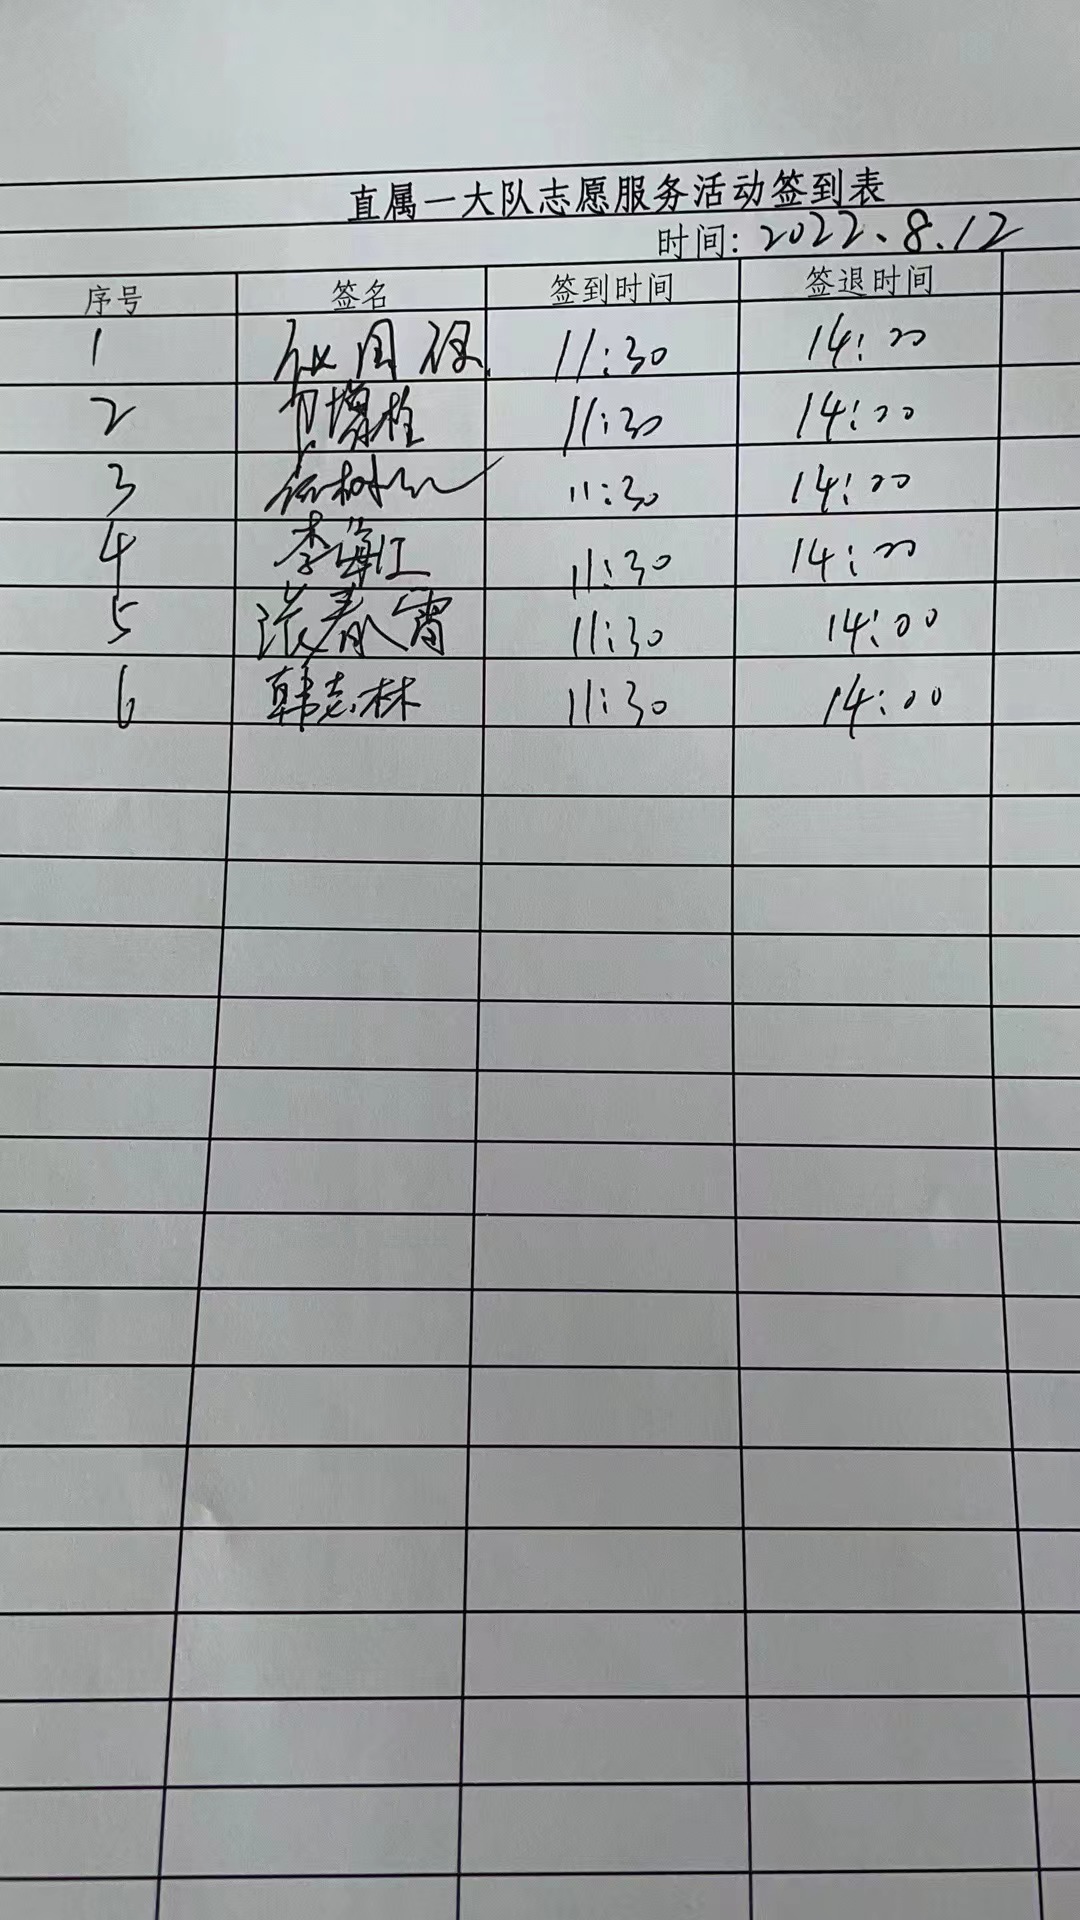 直属一大队志愿服务活动签到表
时间: 2022.8.12
序号 签名 签到时间 签退时间
1 国保 11:30 14:00
2 增栓 11:30 14:00
3 树 11:30 14:00
4 李海江 11:30 14:00
5 张春霄 11:30 14:00
6 韩志林 11:30 14:00